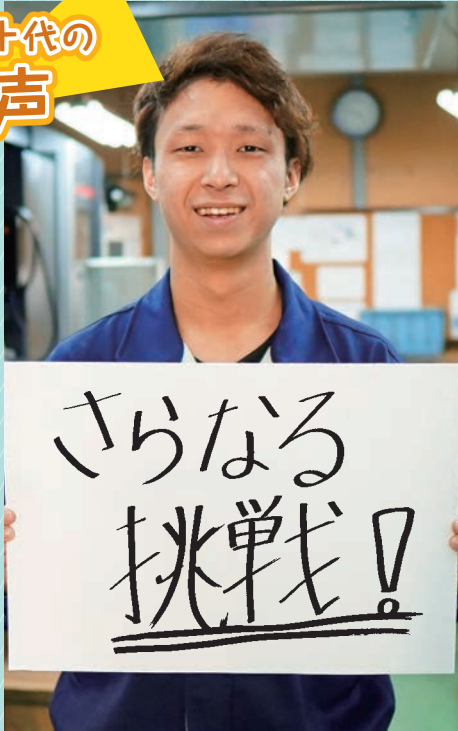 十代の
声
さらなる
挑戦!